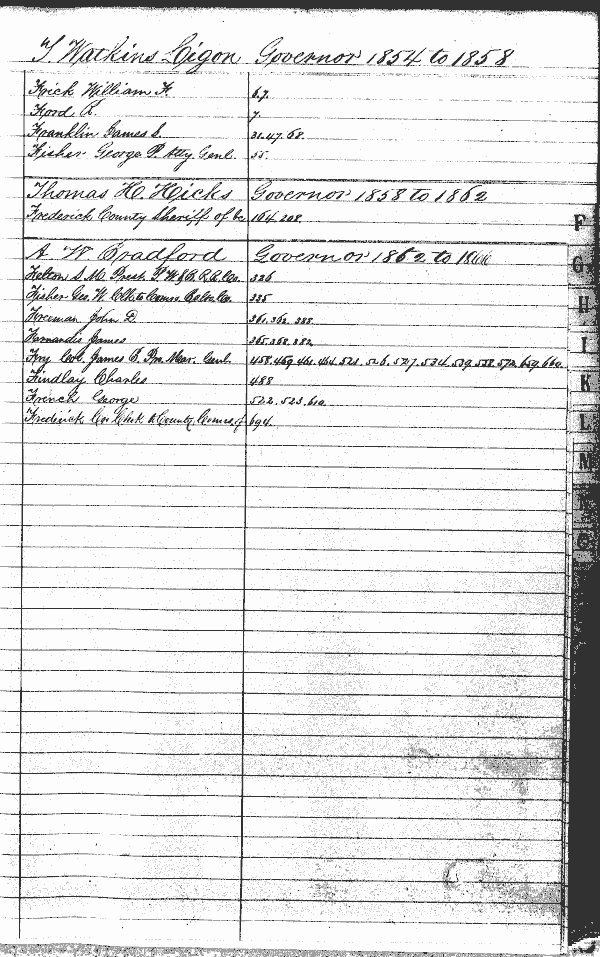 T. Watkins Ligon Governor 1854 to 1858
Frick William F. 6.7.
Ford R. 7.
Franklin James S. 31.47.68.
Fisher George P. Atty. Genl. 55.
Thomas H. Hicks Governor 1858 to 1862
Frederick County Sheriff of 164.208.
A. W. Bradford Governor 1862 to
Felton S. M. Prest. P. W. & B. R. R. Co. 326
Fisher Geo. W. Clk to Comrs. Co. 335
Freeman John D. 361.362.388.
Fernandis James 365.368.382.
Fry Col. James B. Pro. Mar. Genl. 458.469.461.464.521.526.527.534.539.558.572.659.660.
Findlay Charles 488
French George 522.523.610.
Frederick Co. Clerk to County Comrs. of 694.
F
G
H
I
K
L
M